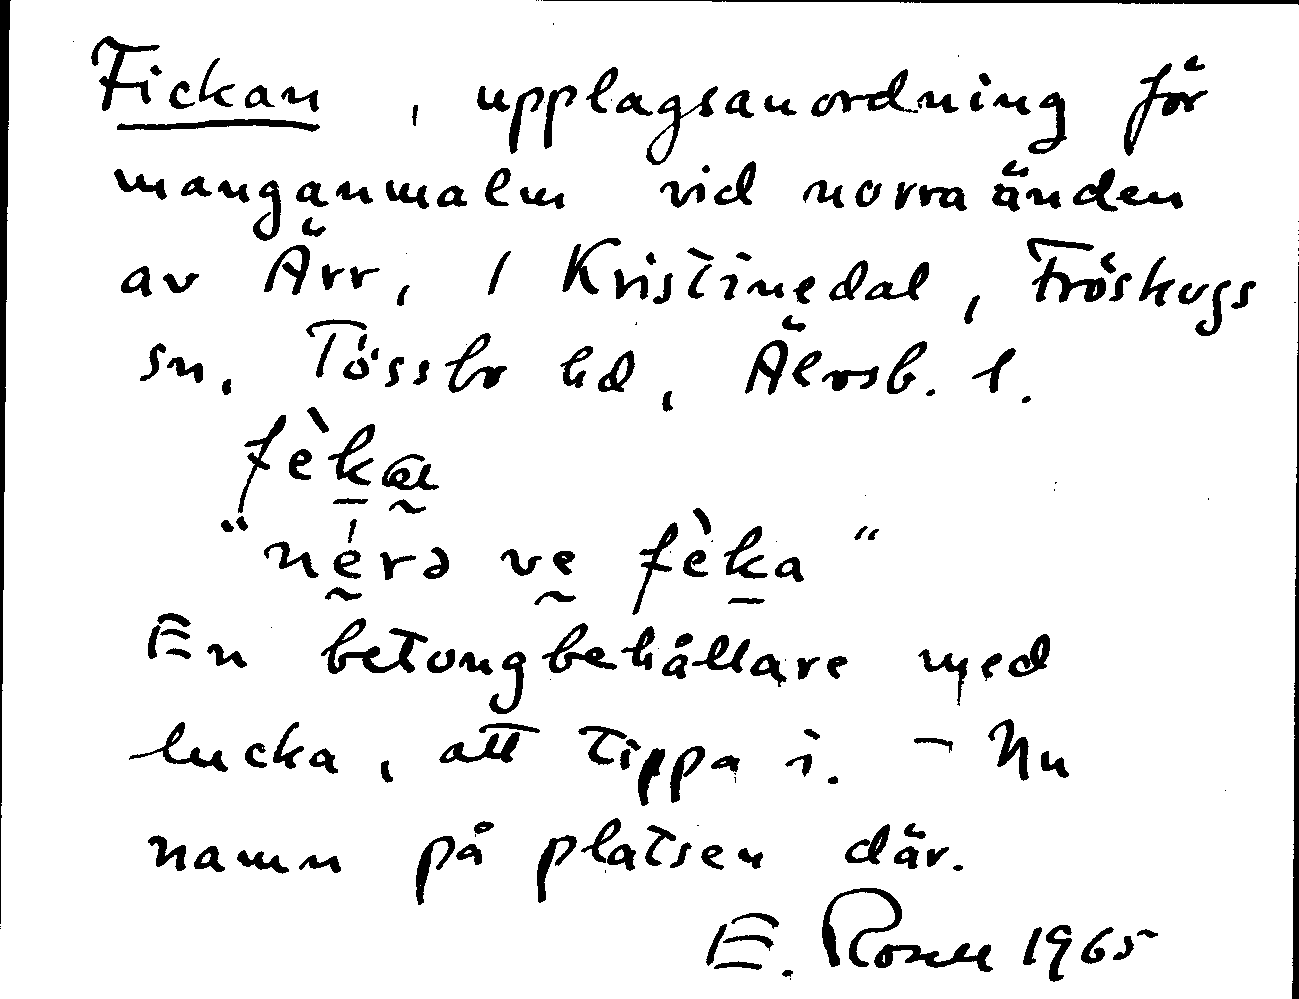 Fickan, upplagsanordning för
manganmalm vid norra änden
av Ärr, 1 Kristinedal, Fröskogs
sn, Tössbo hd, Älvsb. l.
fèka
"nérə ve fèka"
En betongbehållare med
lucka, att tippa i. – Nu
namn på platsen där.
E. Rosell 1965